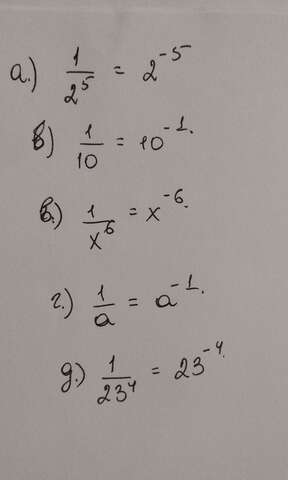 а.) 1/2⁵ = 2⁻⁵
б) 1/10 = 10⁻¹.
в.) 1/x⁶ = x⁻⁶.
г.) 1/a = a⁻¹.
д.) 1/23⁴ = 23⁻⁴.